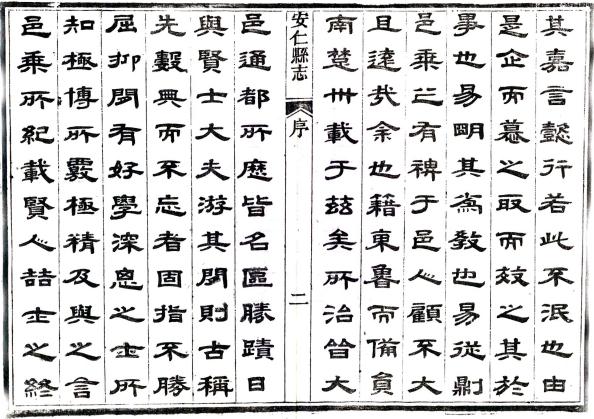 其嘉言懿行若此不泯也由
是企而慕之取而效之其於
事也易明其爲教也易從則
邑乘之有裨于邑人顧不大
且遠哉余也籍東魯而備員
南楚卅載于茲矣所治皆大
安仁縣志 序 二
邑通都所歷皆名區勝蹟日
與賢士大夫游其間則古稱
先數典而不忘者固指不勝
屈抑間有好學深思之士所
知極博所覈極精及與之言
邑乘所紀載賢人喆士之終